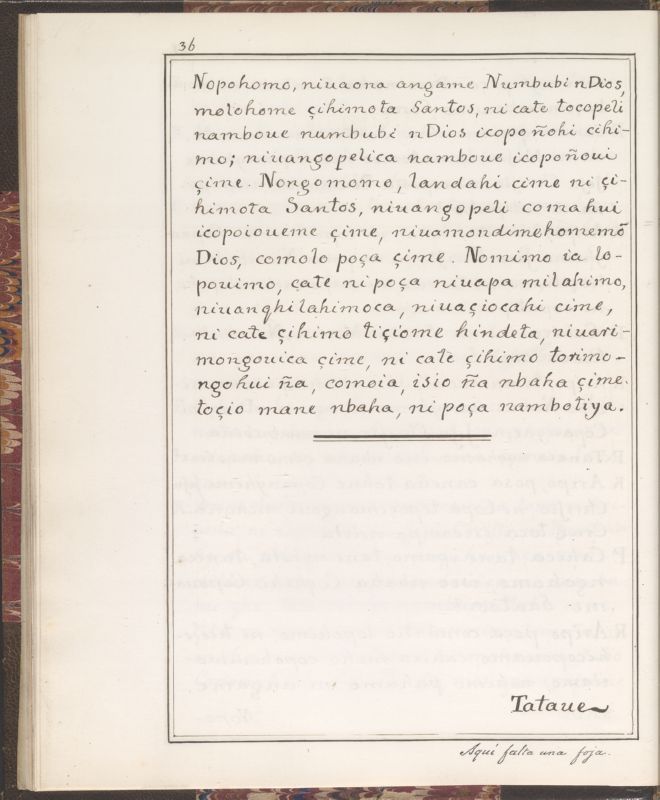 36
Nopohomo, niuaona angame Numbubi nDios,
molohome çihimota Santos, ni cate tocopeli
namboue numbubi nDios icopo ñohi cihi-
mo; niuangopelica namboue icopoñoui
çime. Nongomomo, landahi cime ni çi-
himota Santos, niuangopeli comahui
icopoioueme çime, niuamondimehomemõ
Dios, comolo poça çime. Nomimo ia lo-
pouimo, cate ni poça niuapa milahimo,
niuanghilahimoca, niuaçiocahi cime,
ni cate çihimo tiçiome hindeta, niuari-
mongouica çime, ni cate çihimo torimo-
ngohui ña, comoia, isio ña nbaha çime.
toçio mane nbaha, ni poça nambotiya.
Tataue
Aqui falta una foja.